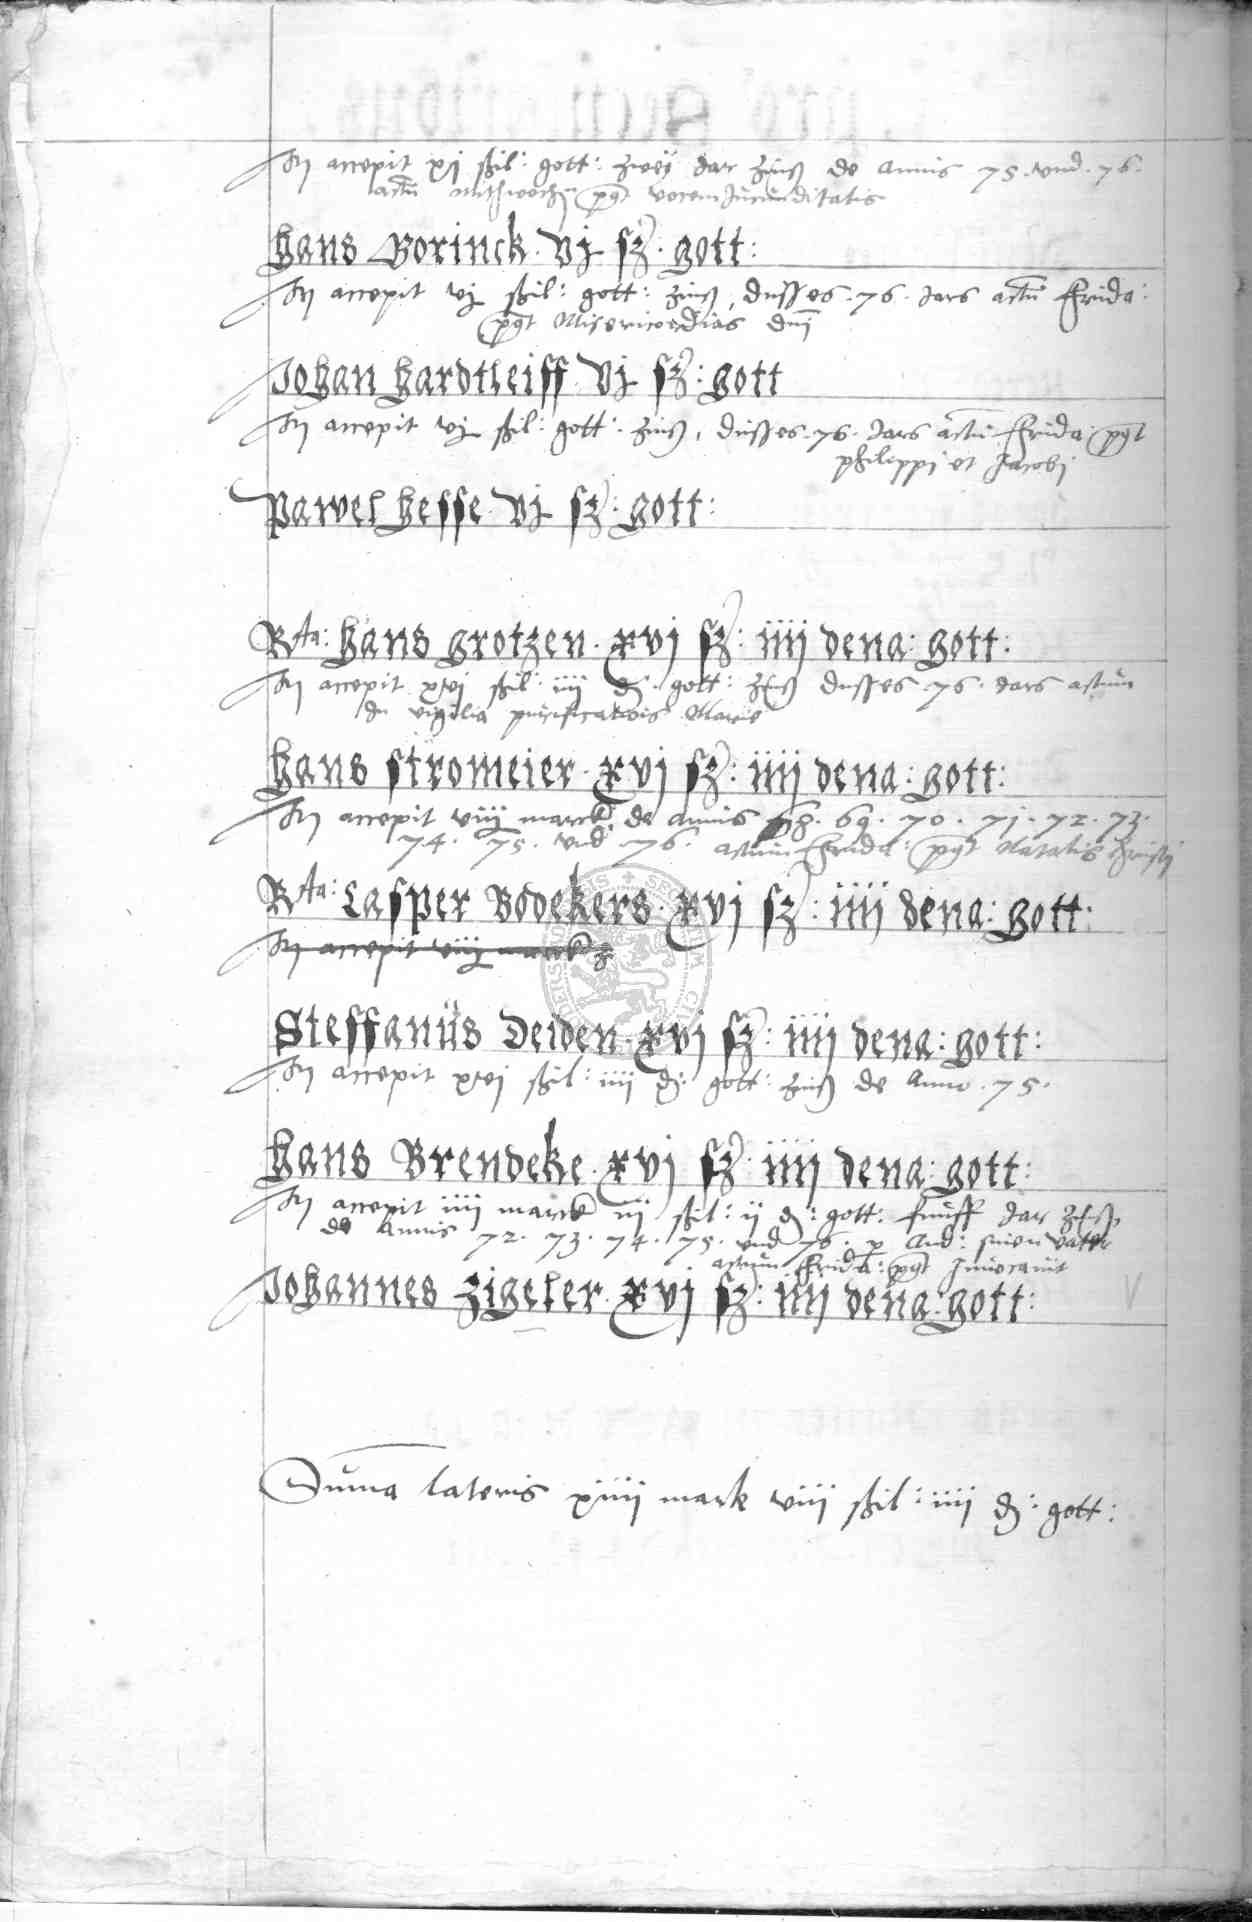 accepit xij ßil: gott: zweÿ Jar Zinß de Annis 75. vnd. 76.
actũ Mithwoch post vocem Jucunditatis
Hans Borinck. vj ß. gott:
accepit vj ßil: gott: Zinß, dusses. 76. Jars actũ ffrida:
post Misericordias dnĩ
Johan Hardtleiff. vj ß: gott
accepit vj ßil: gott: Zinß, dusses. 76. Jars actũ ffrida: post
philippi et Jacobi
Pawel Hesse. vj ß: gott:
Rta: Hans Grotzen. xvj ß: iiij dena: gott:
accepit xvj ßil: iiij d. gott: Zinß dusses. 76. Jars actum
In vigilia purificatiois Marie
Hans Stromeier. xvj ß: iiij dena: gott:
accepit viiij marck de Annis 68. 69. 70. 71. 72. 73.
74. 75. vnd. 76. actum ffrida: post Natalis Christi
Rta: Casper Bödekers. xvj ß: iiij dena: gott:
accepit viij marck
Steffanüs Deiden. xvj ß: iiij dena: gott:
accepit xvj ßil: iiij d: gott: Zinß de Anno. 75.
Hans Brendeke. xvj ß: iiij dena: gott:
accepit iiij marck iij ßil: ij d: gott: funff Jar Zinß
de Annis 72. 73. 74. 75. vnd 76. p And: sinen vater
actum ffrida: post Inuocauit
Johannes Zigeler. xvj ß: iiij dena: gott:
Suma lateris xiiij mark viij ßil: iiij d: gott: